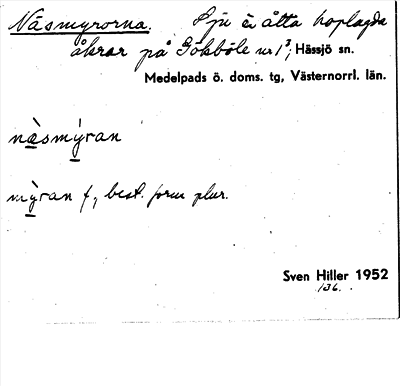 Näsmyrorna. Sju à åtta hoplagda
åkrar på Gökböle nr 1³; Hässjö sn.
Medelpads ö. doms. tg, Västernorrl. län.
nä̀smýran
mỳran f, best. form plur.
Sven Hiller 1952
136.